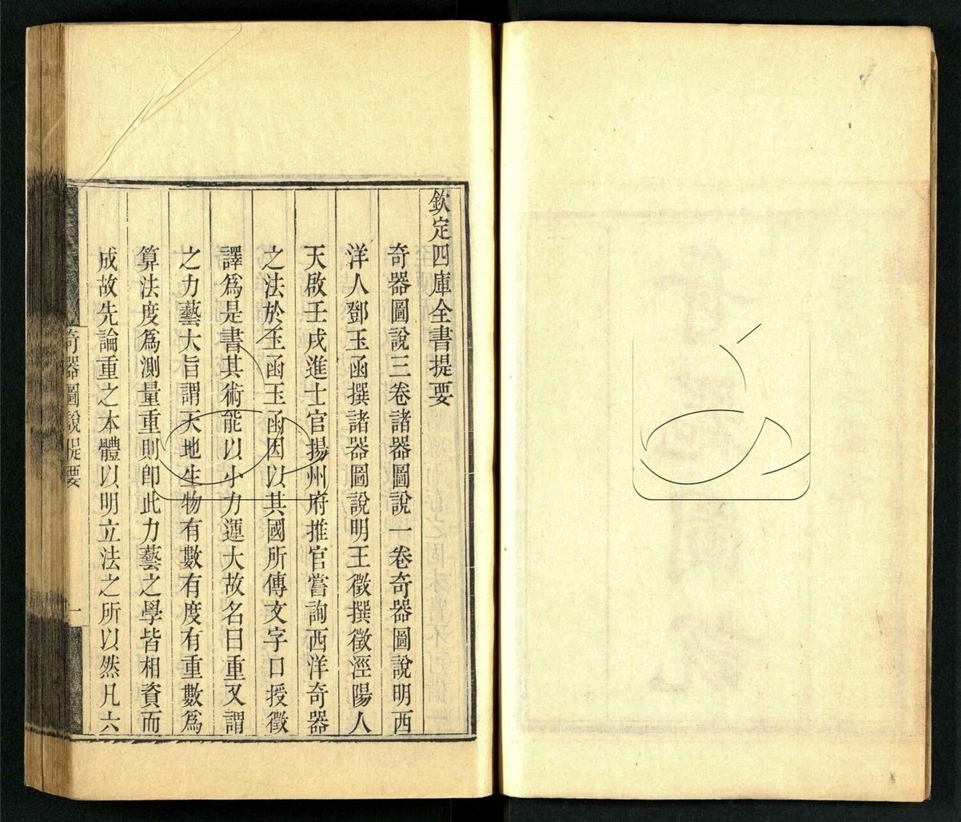 欽定四庫全書提要
奇器圖說三卷諸器圖說一卷奇器圖說明西
洋人鄧玉函撰諸器圖說明王徵撰徵涇陽人
天啟壬戌進士官揚州府推官嘗詢西洋奇器
之法於玉函玉函因以其國所傳文字口授徵
譯爲是書其術能以小力運大故名曰重又謂
之力藝大旨謂天地生物有數有度有重數爲
算法度爲測量重則卽此力藝之學皆相資而
成故先論重之本體以明立法之所以然凡六
奇器圖說提要
一